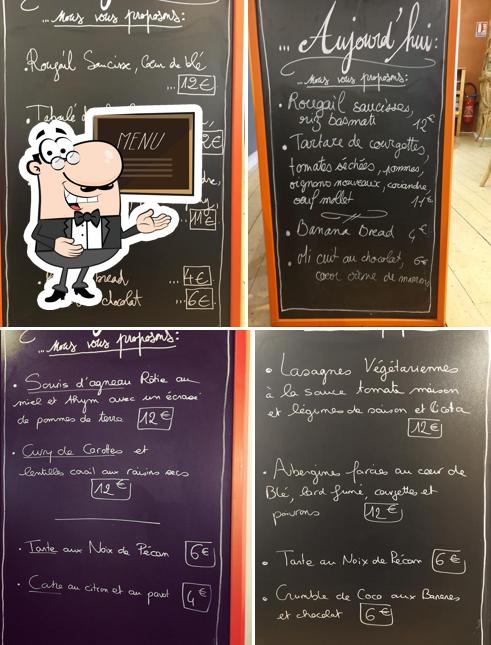 nous vous proposons:
Rougail Saucisse, Cœur de blé
... 12€.
Taboulé
2€
MENU
11€
bread ... 4€.
chocolat ... 6€.
... Aujourd'hui:
... nous vous proposons:
• Rougail saucisses,
riz basmati 12€
• Tartare de courgettes,
tomates séchées, pommes,
oignons nouveaux, coriandre,
oeuf mollet 11€
• Banana Bread 4€
• Mi cuit au chocolat, 6€
coeur crème de marrons
... nous vous proposons:
• Souris d'agneau Rôtie au
miel et thym avec un écrasé
de pommes de terre 12€
• Curry de Carottes et
lentilles corail aux raisins secs
12€
• Tarte aux Noix de Pécan 6€
• Cake au citron et au pavot 4€
• Lasagnes Végétariennes
à la sauce tomate maison
et légumes de saison et Ricotta
12€
• Aubergine farcies au cœur de
Blé, lard fumé, courgettes et
poivrons 12€
• Tarte au Noix de Pécan 6€
• Crumble de Coco aux Bananes
et chocolat 6€